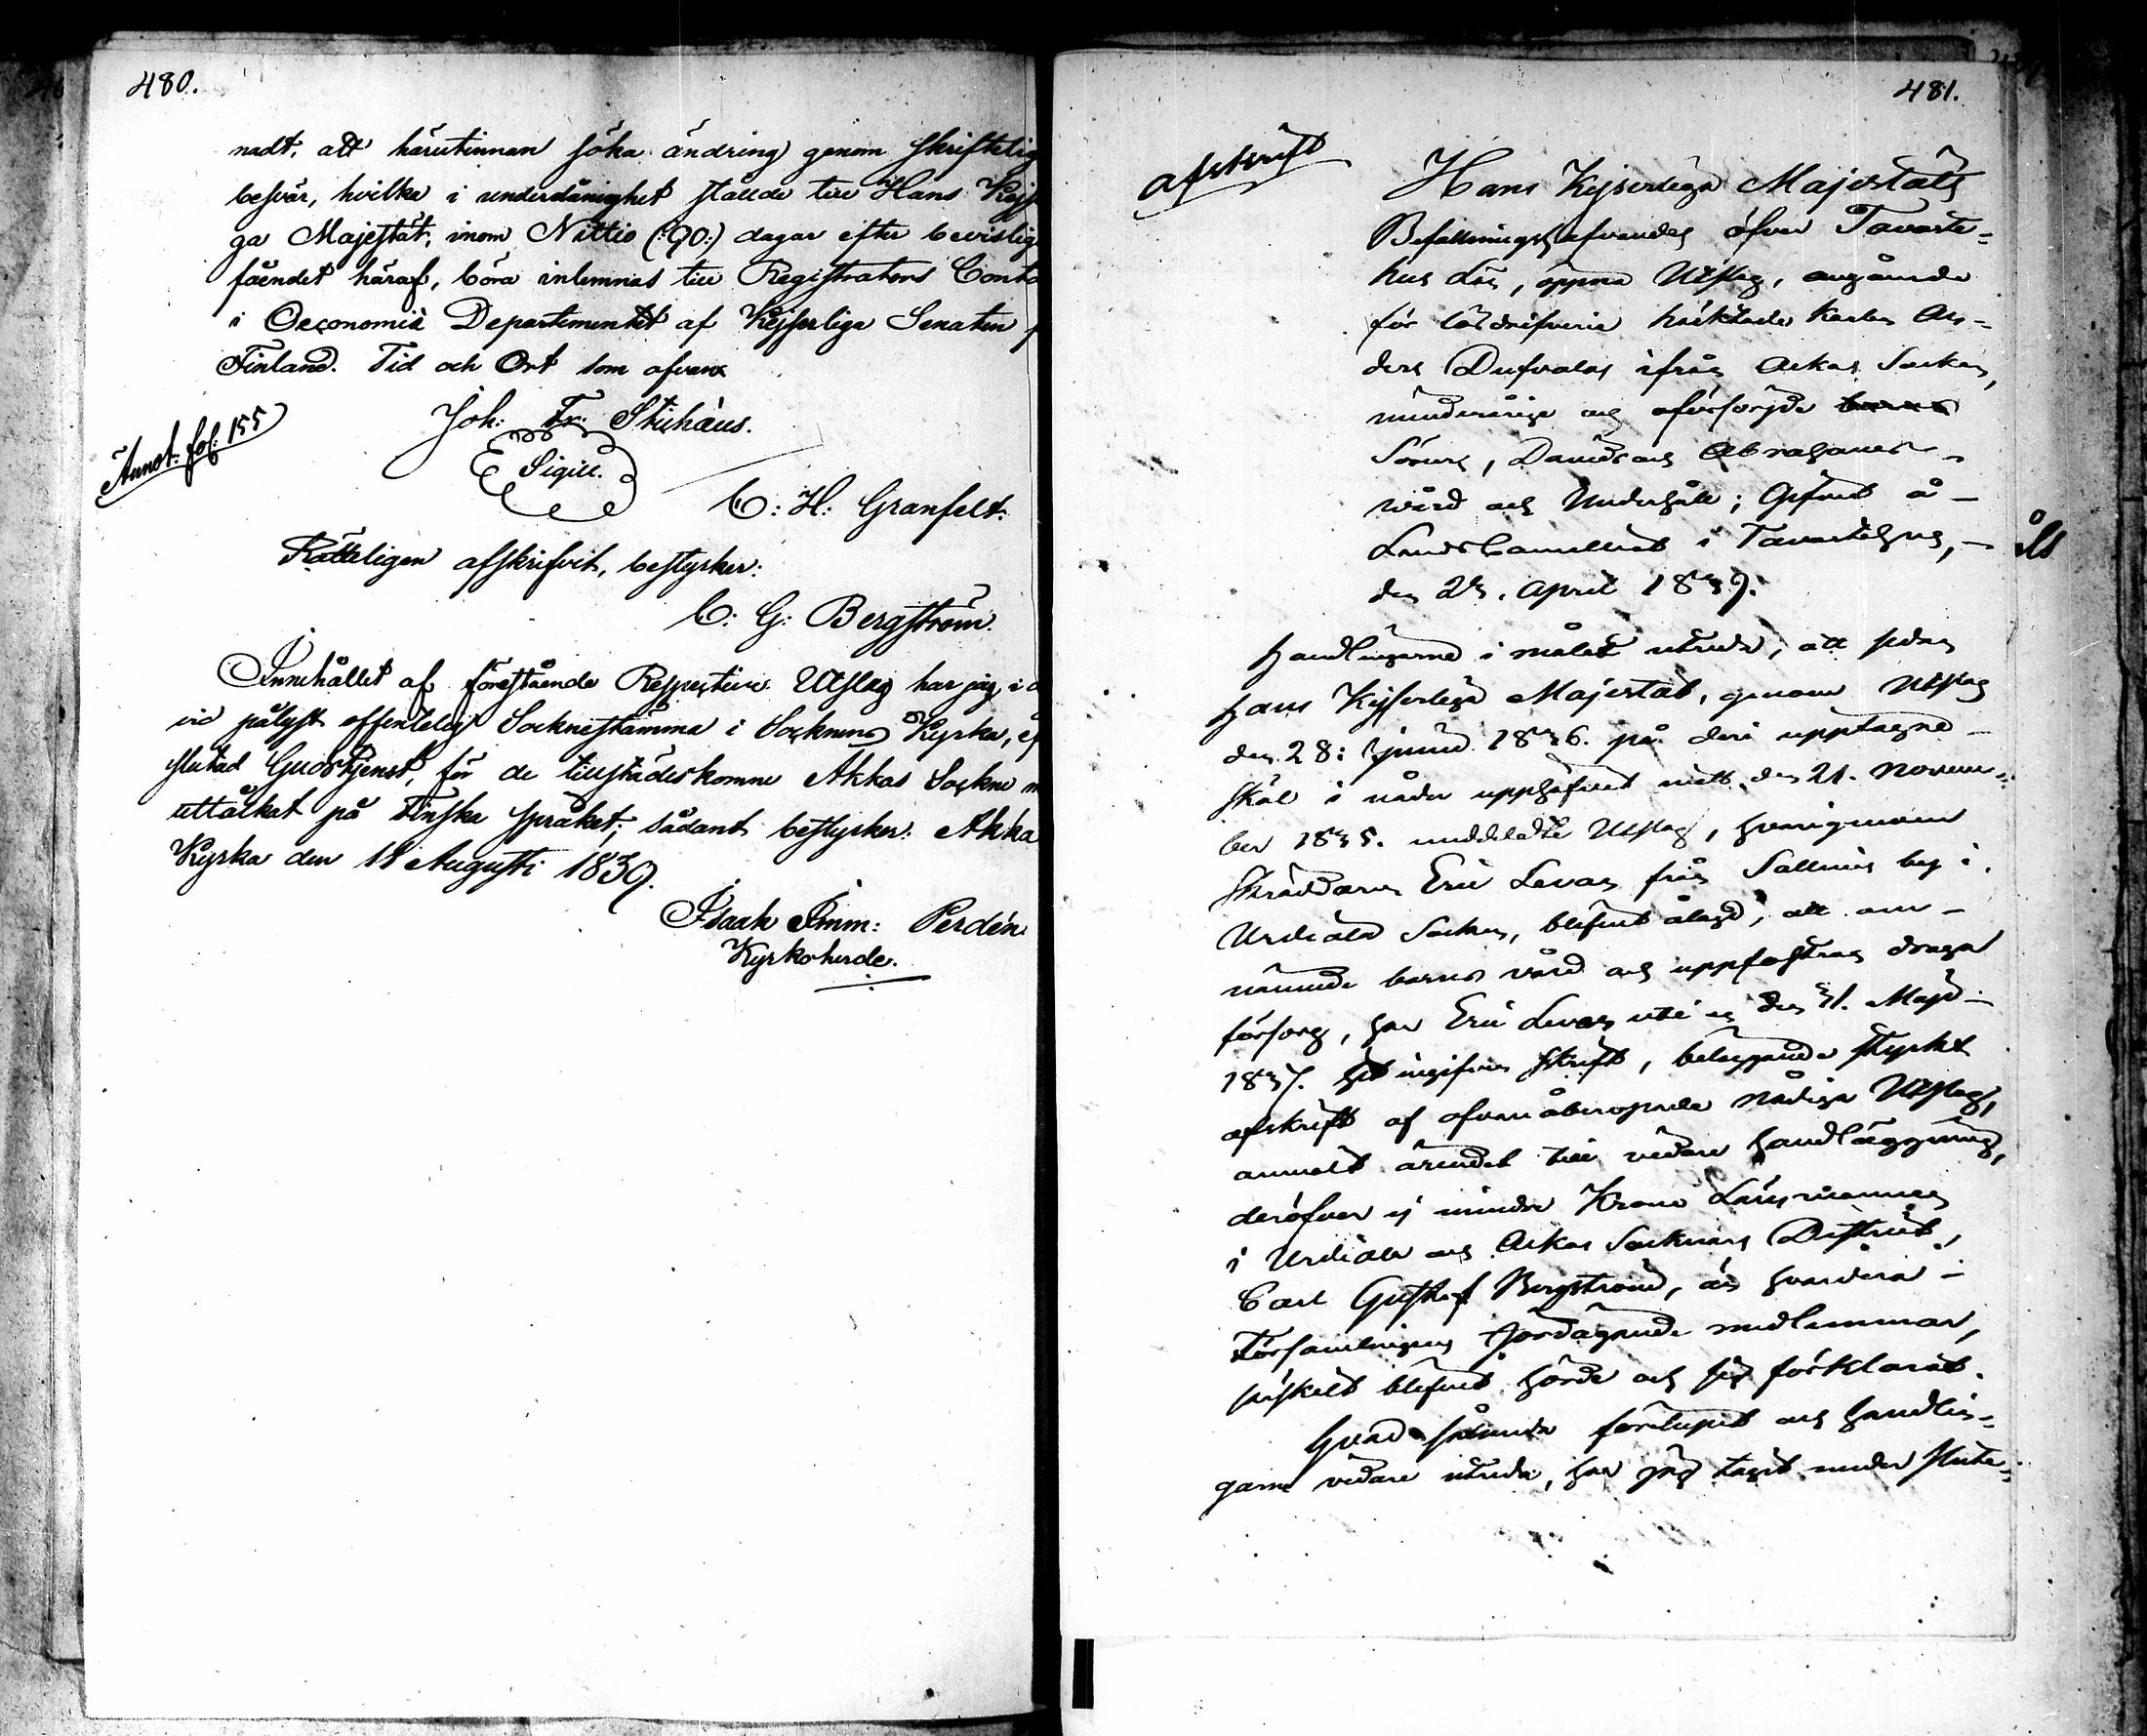 480.
nadt, att härutinnan söka ändring genom skriftelig
besvär, hvilka i underdånighet ställde till Hans Kejs
ga Majestät, inom Nittio (:90:) dagar efter bevislig
fåendet häraf, böra inlemnas till Registrators Conto
i Oeconomie Departementet af Kejserliga Senaten f
Finland. Tid och Ort som ofvan
Annot. fol: 155
Joh: Fr: Stichæus.
Sigill.
C: H: Granfelt.
Rätteligen afskrifvit, bestyrker:
C: G: Bergström.
Innehållet af förestående Respective Utslag har jag, i d
vid pålyst offentelig Socknestämma i Socknens Kyrka, ef
slutad Gudstjenst, för de tillstädeskomne Akkas Sockne m
uttålkat på Finska språket; sådant bestyrker. Akka
Kyrka den 11 Augusti 1839.
Isaak Imm: Perdén
Kyrkoherde.
481.
afskrift
Hans Kejserliga Majestäts
Befallningshafvandes öfver Tavaste-
hus Län, öppna Utslag, angående
för lösdrifveri häktade Karlen An-
ders Dufvalas ifrån Ackas Socken,
minderårige och oförsörjde barns
Söners, Davids och Abrahams
vård och Underhåll; Gifvet å
Landscancelliet i Tavastehus,
den 25. April 1839.
Handlingarne i målet utreda, att sedan
Hans Kejserliga Majestät, genom Utslag
den 28: Junii 1836. på deri upptagne
skäl i nåder upphäfvit mitt den 21. Novem-
ber 1835. meddelade Utslag, hvarigenom
Skräddaren Eric Levan från Sallmis by i
Urdiala Socken, blifvit ålagd, att om
nämnde barns vård och uppfostran draga
försorg, har Eric Levan uti en den 31. Maji
1837. hit ingifven skrift, beläggande styrkt
afskrift af ofvanåberopade Nådiga Utslag,
anmält ärendet till vidare handläggning,
deröfver ej mindre Krono Länsmannen
i Urdiala och Ackas Socknars District,
Carl Gustaf Bergström, än hvardera
Församlingens Jordägande medlemmar,
särskildt blifvit hörde och sig förklarat.
Hvad sålunda förelupit och handlin-
garne vidare utreda, har jag tagit under skär-